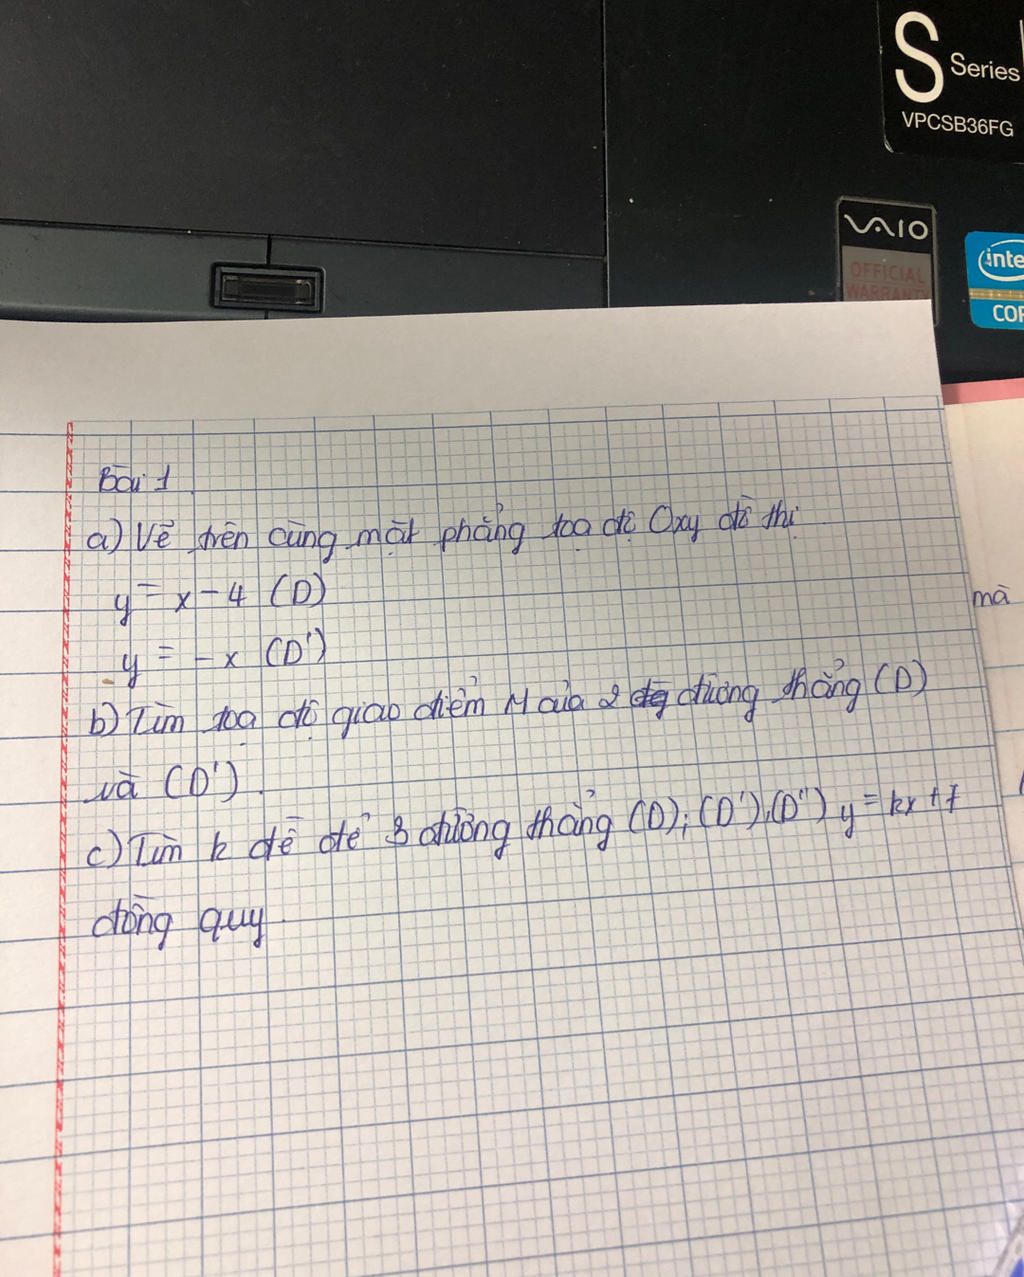 S Series
VPCSB36FG
VAIO
OFFICIAL
WARRANT
inte
COR
Bài 1
a) Vẽ trên cùng mặt phẳng toạ độ Oxy đồ thị
y = x - 4 (D)
y = - x (D')
b) Tìm toạ độ giao điểm M của 2 đường thẳng (D)
và (D').
c) Tìm k để để 3 đường thẳng (D); (D'), (D'') y = kx + 7
đồng quy
mà